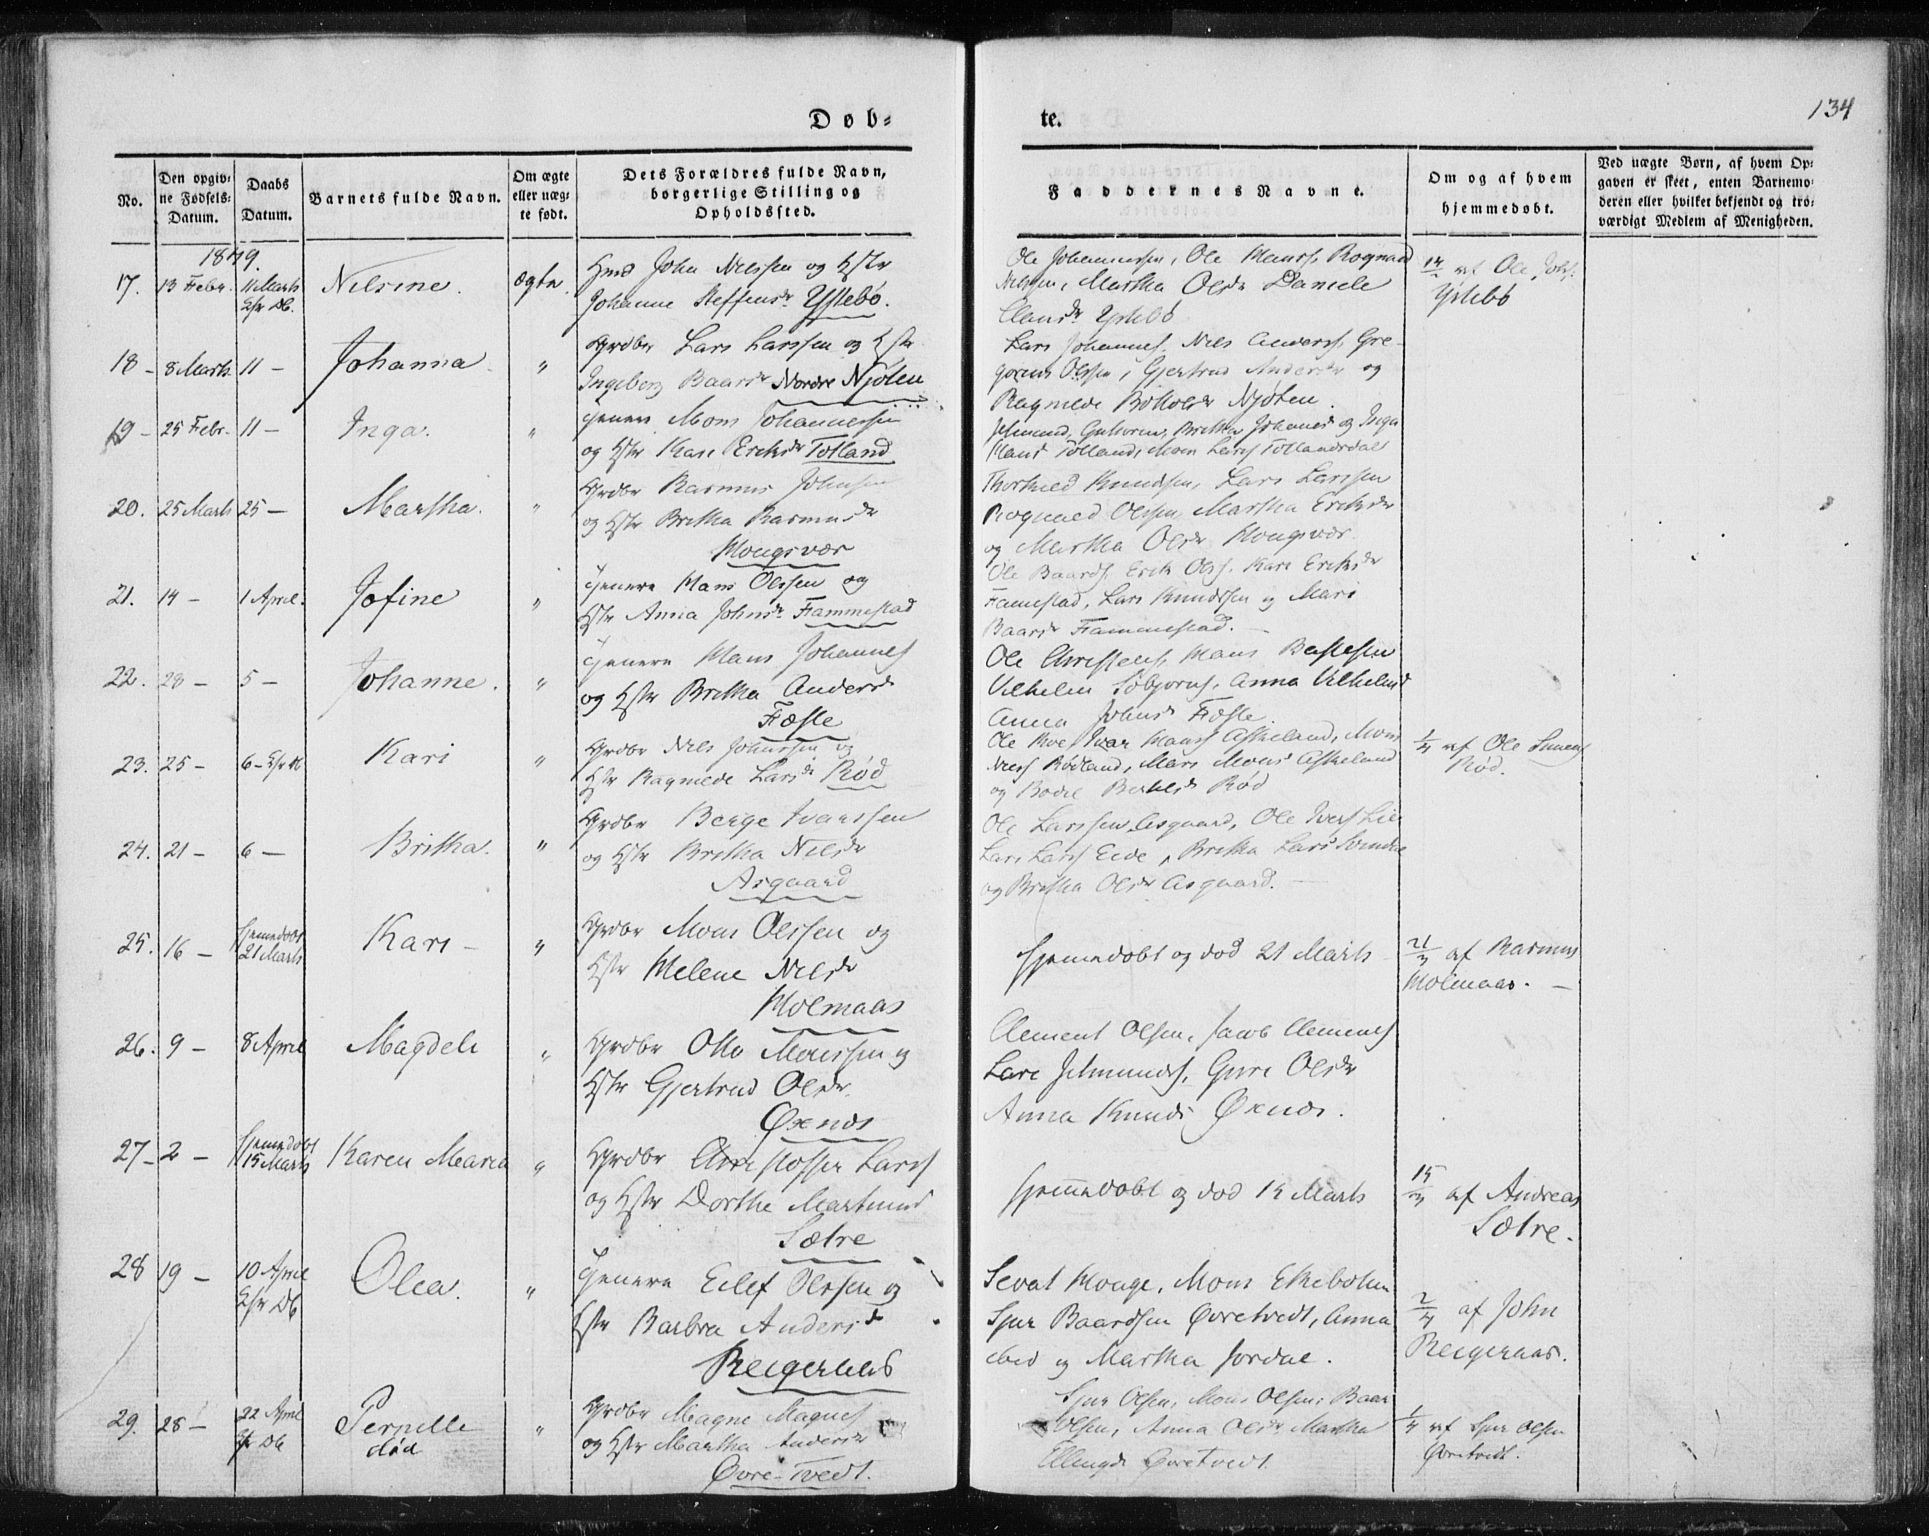 Døb-
te.
134
No.
Den opgiv-
ne Fødsels-
Datum.
Daabs
Datum.
Barnets fulde Navn.
Om ægte
eller uæg-
te født.
Dets Forældres fulde Navn,
borgerlige Stilling og
Opholdssted.
Faddernes Navne.
Om og af hvem
hjemmedøbt.
Ved uægte Børn, af hvem Op-
gaven er skeet, enten Barnemo-
deren eller hvilket bekjendt og tro-
værdigt Medlem af Menigheden.
1849.
17. 13 Febr. 11 Marts Nilsine. Ægte. John Nilssen og Hstr
Johanne Steffensdr Ystebø.
Ole Johannessen, Ole Hanss, Rognald
Nilssen, Martha Olsdr Daniele
Ystebø
af Ole Johs.
Ystebø
18 - 8 Marts 11 - Johanna. " Grdbr Lars Larssen og Hstr
Ingeborg Baardsdr Nordre Njøten
Lars Johannes, Nils Anderss, Gre-
gorius Olssen, Gjertrud Andersdr og
Ragnilde Njøten.
19 - 25 Febr. 11 - Inga. " Mons Johannessen
og Hstr Kari Eriksdr Totland
Britha Johansdr og Inga
Hansd Totland, Mons Larss Totlandsdal
20. 25 Marts 25 - Martha. " Grdbr Rasmus Johnsen
og Hstr Britha Rasmusdr
Kongsvær
Knudsen, Lars Larssen
Rognald Olssen, Martha Eriksdr
og Martha Olsdr Kongsvær
21. 14 - 1 April. Jofine " Hans Olssen og
Hstr Anna Johnsdr Fammestad
Ole Baards, Erik Olss, Kari Eriksdr
Famestad, Lars Knudssen og Mari
Baardsdr Fammestad.
22. 28 - 5 - Johanne. " Hans Johannes
og Hstr Britha Andersdr
Fæste
Ole Christens, Hans
Vilhelm Anna Vilhelmsd
Anna Johnsdr Fæste
23. 25 - 6 - Kari " Grdbr Nils Johnssen og
Hstr Ragnilde Larsdr Rød
Ole Roe, Ivar Hanss Askeland, Mons
Niels Rødland, Mari Monsd Askeland
og Rød
1/4 af Ole
Rød.
24. 21 - 6 - Britha. " Grdbr Berge Ivarssen
og Hstr Britha Nilsdr
Asgaard
Ole Larssen Asgaard, Ole Iverss Lie
Lars Larss Eide, Britha Larsd
og Britha Olsdr Asgaard.
25. 16 - Hjemedøbt
21 Marts
Kari - " Grdbr Mons Olssen og
Hstr Helene Nilsdr
Holmaas
Hjemmedøbt og død 21 Marts
21/3 af Rasmus
Holmaas. -
26. 9 - 8 April Magdeli " Grdbr Otto Monssen og
Hstr Gjertrud Olsdr.
Øxnæs
Clement Olsen, Jacob Clements
Lars Jetmunds, Guri Olsdr
Anna Knudsd Øxnæs.
27 - 2 - Hjemedøbt
15 Marts
Karen Maria " Grdbr Christoffer Larss
og Hstr Dorthe Martinusd
Sætre
Hjemmedøbt og død 15 Marts
15/3 af Andreas
Sætre.
28 19 - 10 April Olea. " Eilef Olssen og
Hstr Barbra Andersd
Reigeraas
Sevat Houge, Mons Ekebolm
Sjur Baardsen Øvretvedt, Anna
ibid og Martha Jordal.
2/4 af John
Reigeraas.
29. 28 - 22 April Pernille
død
" Grdbr Magne Magness
og Hstr Martha Andersdr
Øvre-Tvedt.
Sjur Olsen, Mons Olsen, Baar
Olsen, Anna Olsdr Martha
Ellingsd Øvretvedt
1/4 af Sjur Olsen
Øvretvedt.